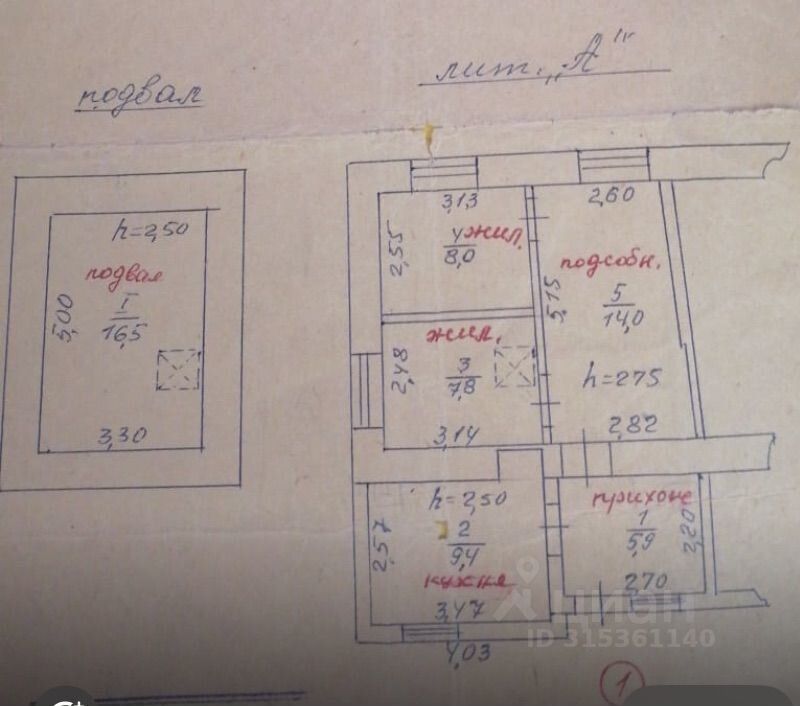 подвал
лит. „А"
h=2,50
подвал
I
16,5
5,00
3,30
3,13
2,55
4
8,0
жил.
2,60
подсобн.
5
14,0
5,15
h=275
2,82
жил.
3
7,8
2,48
3,14
h=2,50
2
9,4
2,57
кухня
3,47
4,03
прихоже
1
5,9
2,20
2,70
циан
ID 315361140
1